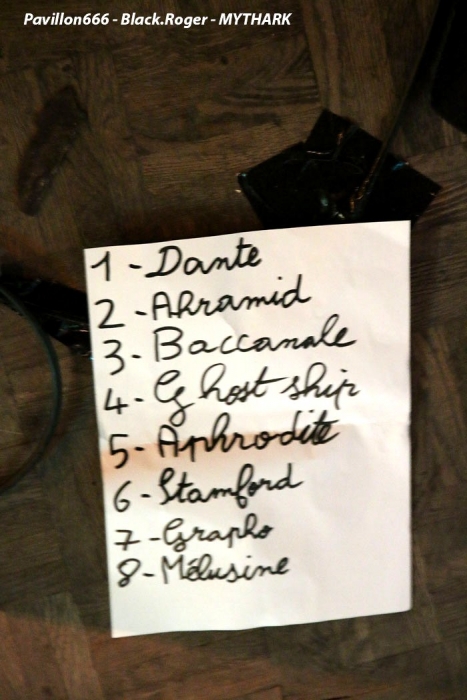 Pavillon666 - Black.Roger - MYTHARK
1 - Dante
2 - Ahramid
3 - Baccanale
4 - Ghost ship
5 - Aphrodite
6 - Stamford
7 - Grapho
8 - Mélusine